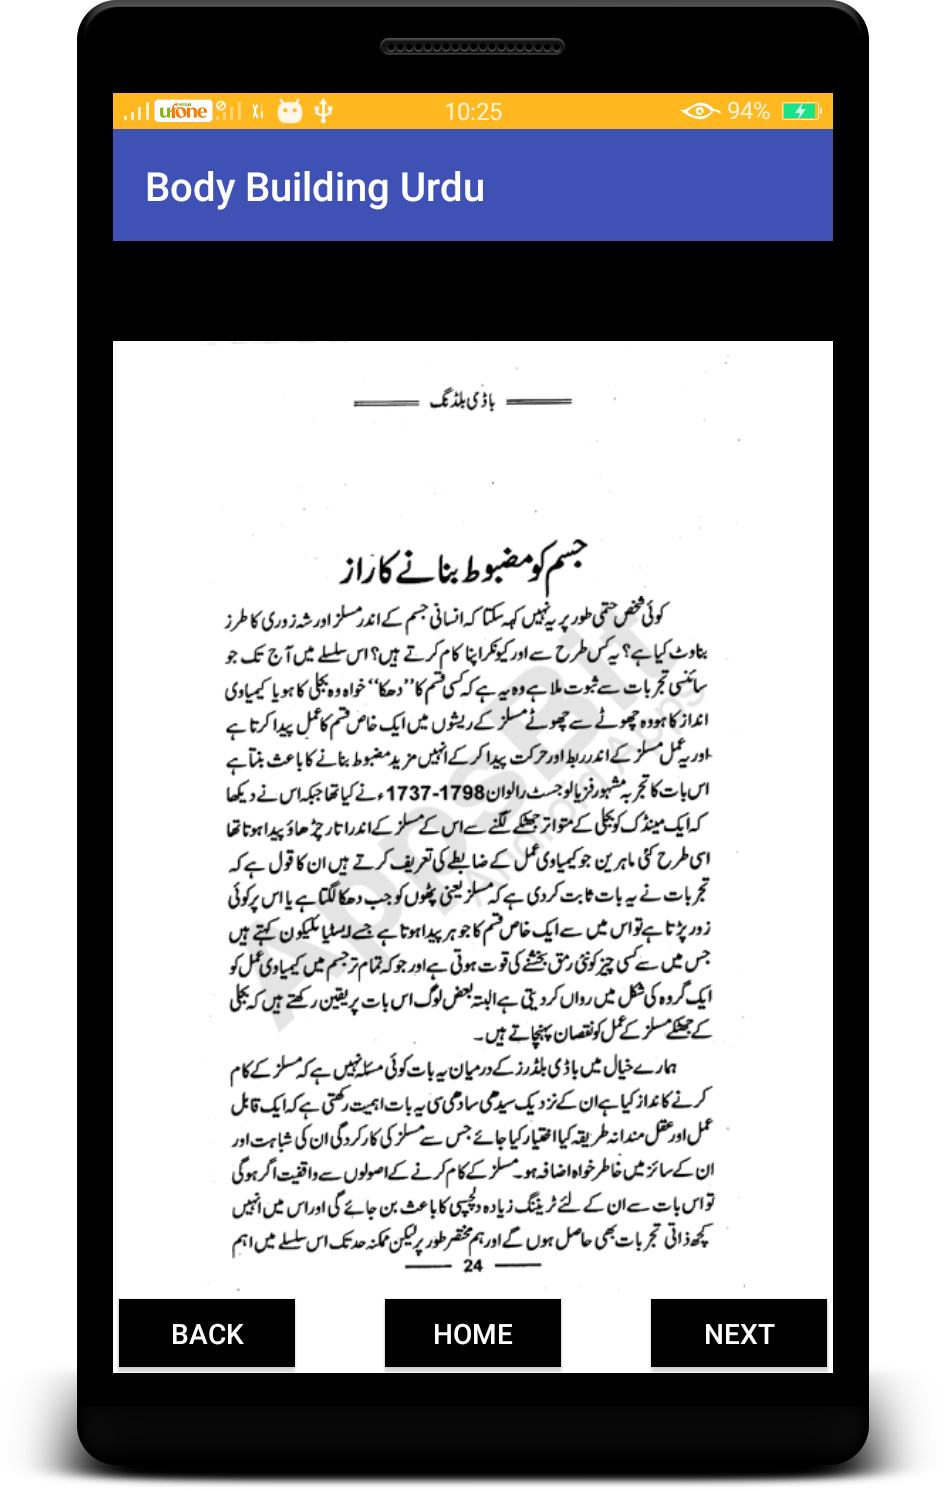 ufone
10:25
94%
Body Building Urdu
باڈی بلڈنگ
جسم کو مضبوط بنانے کا راز
کوئی شخص حتمی طور پر یہ نہیں کہہ سکتا کہ انسانی جسم کے اندر مسلز اور شہ زوری کا طرز
بناوٹ کیا ہے؟ یہ کس طرح سے اور کیونکر اپنا کام کرتے ہیں؟ اس سلسلے میں آج تک جو
سائنسی تجربات سے ثبوت ملا ہے وہ یہ ہے کہ کسی قسم کا ‘‘دھکا’’ خواہ وہ بجلی کا ہو یا کیمیاوی
انداز کا ہو وہ چھوٹے سے چھوٹے مسلز کے ریشوں میں ایک خاص قسم کا عمل پیدا کرتا ہے
اور یہ عمل مسلز کے اندر ربط اور حرکت پیدا کر کے انہیں مزید مضبوط بنانے کا باعث بنتا ہے
اس بات کا تجربہ مشہور فزیالوجسٹ رالوان 1798-1737ء نے کیا تھا جبکہ اس نے دیکھا
کہ ایک مینڈک کو بجلی کے متواتر جھٹکے لگنے سے اس کے مسلز کے اندر اتار چڑھاؤ پیدا ہوتا تھا
اسی طرح کئی ماہرین جو کیمیاوی عمل کے ضابطے کی تعریف کرتے ہیں ان کا قول ہے کہ
تجربات نے یہ بات ثابت کر دی ہے کہ مسلز یعنی پٹھوں کو جب دھکا لگتا ہے یا اس پر کوئی
زور پڑتا ہے تو اس میں سے ایک خاص قسم کا جوہر پیدا ہوتا ہے جسے ایسٹیا ئلیکون کہتے ہیں
جس میں سے کسی چیز کو نئی رمق بخشنے کی قوت ہوتی ہے اور جو کہ تمام تر جسم میں کیمیاوی عمل کو
ایک گروہ کی شکل میں رواں کر دیتی ہے البتہ بعض لوگ اس بات پر یقین رکھتے ہیں کہ بجلی
کے جھٹکے مسلز کے عمل کو نقصان پہنچاتے ہیں۔
ہمارے خیال میں باڈی بلڈرز کے درمیان یہ بات کوئی مسئلہ نہیں ہے کہ مسلز کے کام
کرنے کا انداز کیا ہے ان کے نزدیک سیدھی سادھی سی یہ بات اہمیت رکھتی ہے کہ ایک قابل
عمل اور عقل مندانہ طریقہ کیا اختیار کیا جائے جس سے مسلز کی کارکردگی ان کی شباہت اور
ان کے سائز میں خاطر خواہ اضافہ ہو۔ مسلز کے کام کرنے کے اصولوں سے واقفیت اگر ہوگی
تو اس بات سے ان کے لئے ٹریننگ زیادہ دلچسپی کا باعث بن جائے گی اور اس میں انہیں
کچھ ذاتی تجربات بھی حاصل ہوں گے اور ہم مختصر طور پر لیکن ممکنہ حد تک اس سلسلے میں اہم
24
AppsBit
Android Apps
BACK
HOME
NEXT